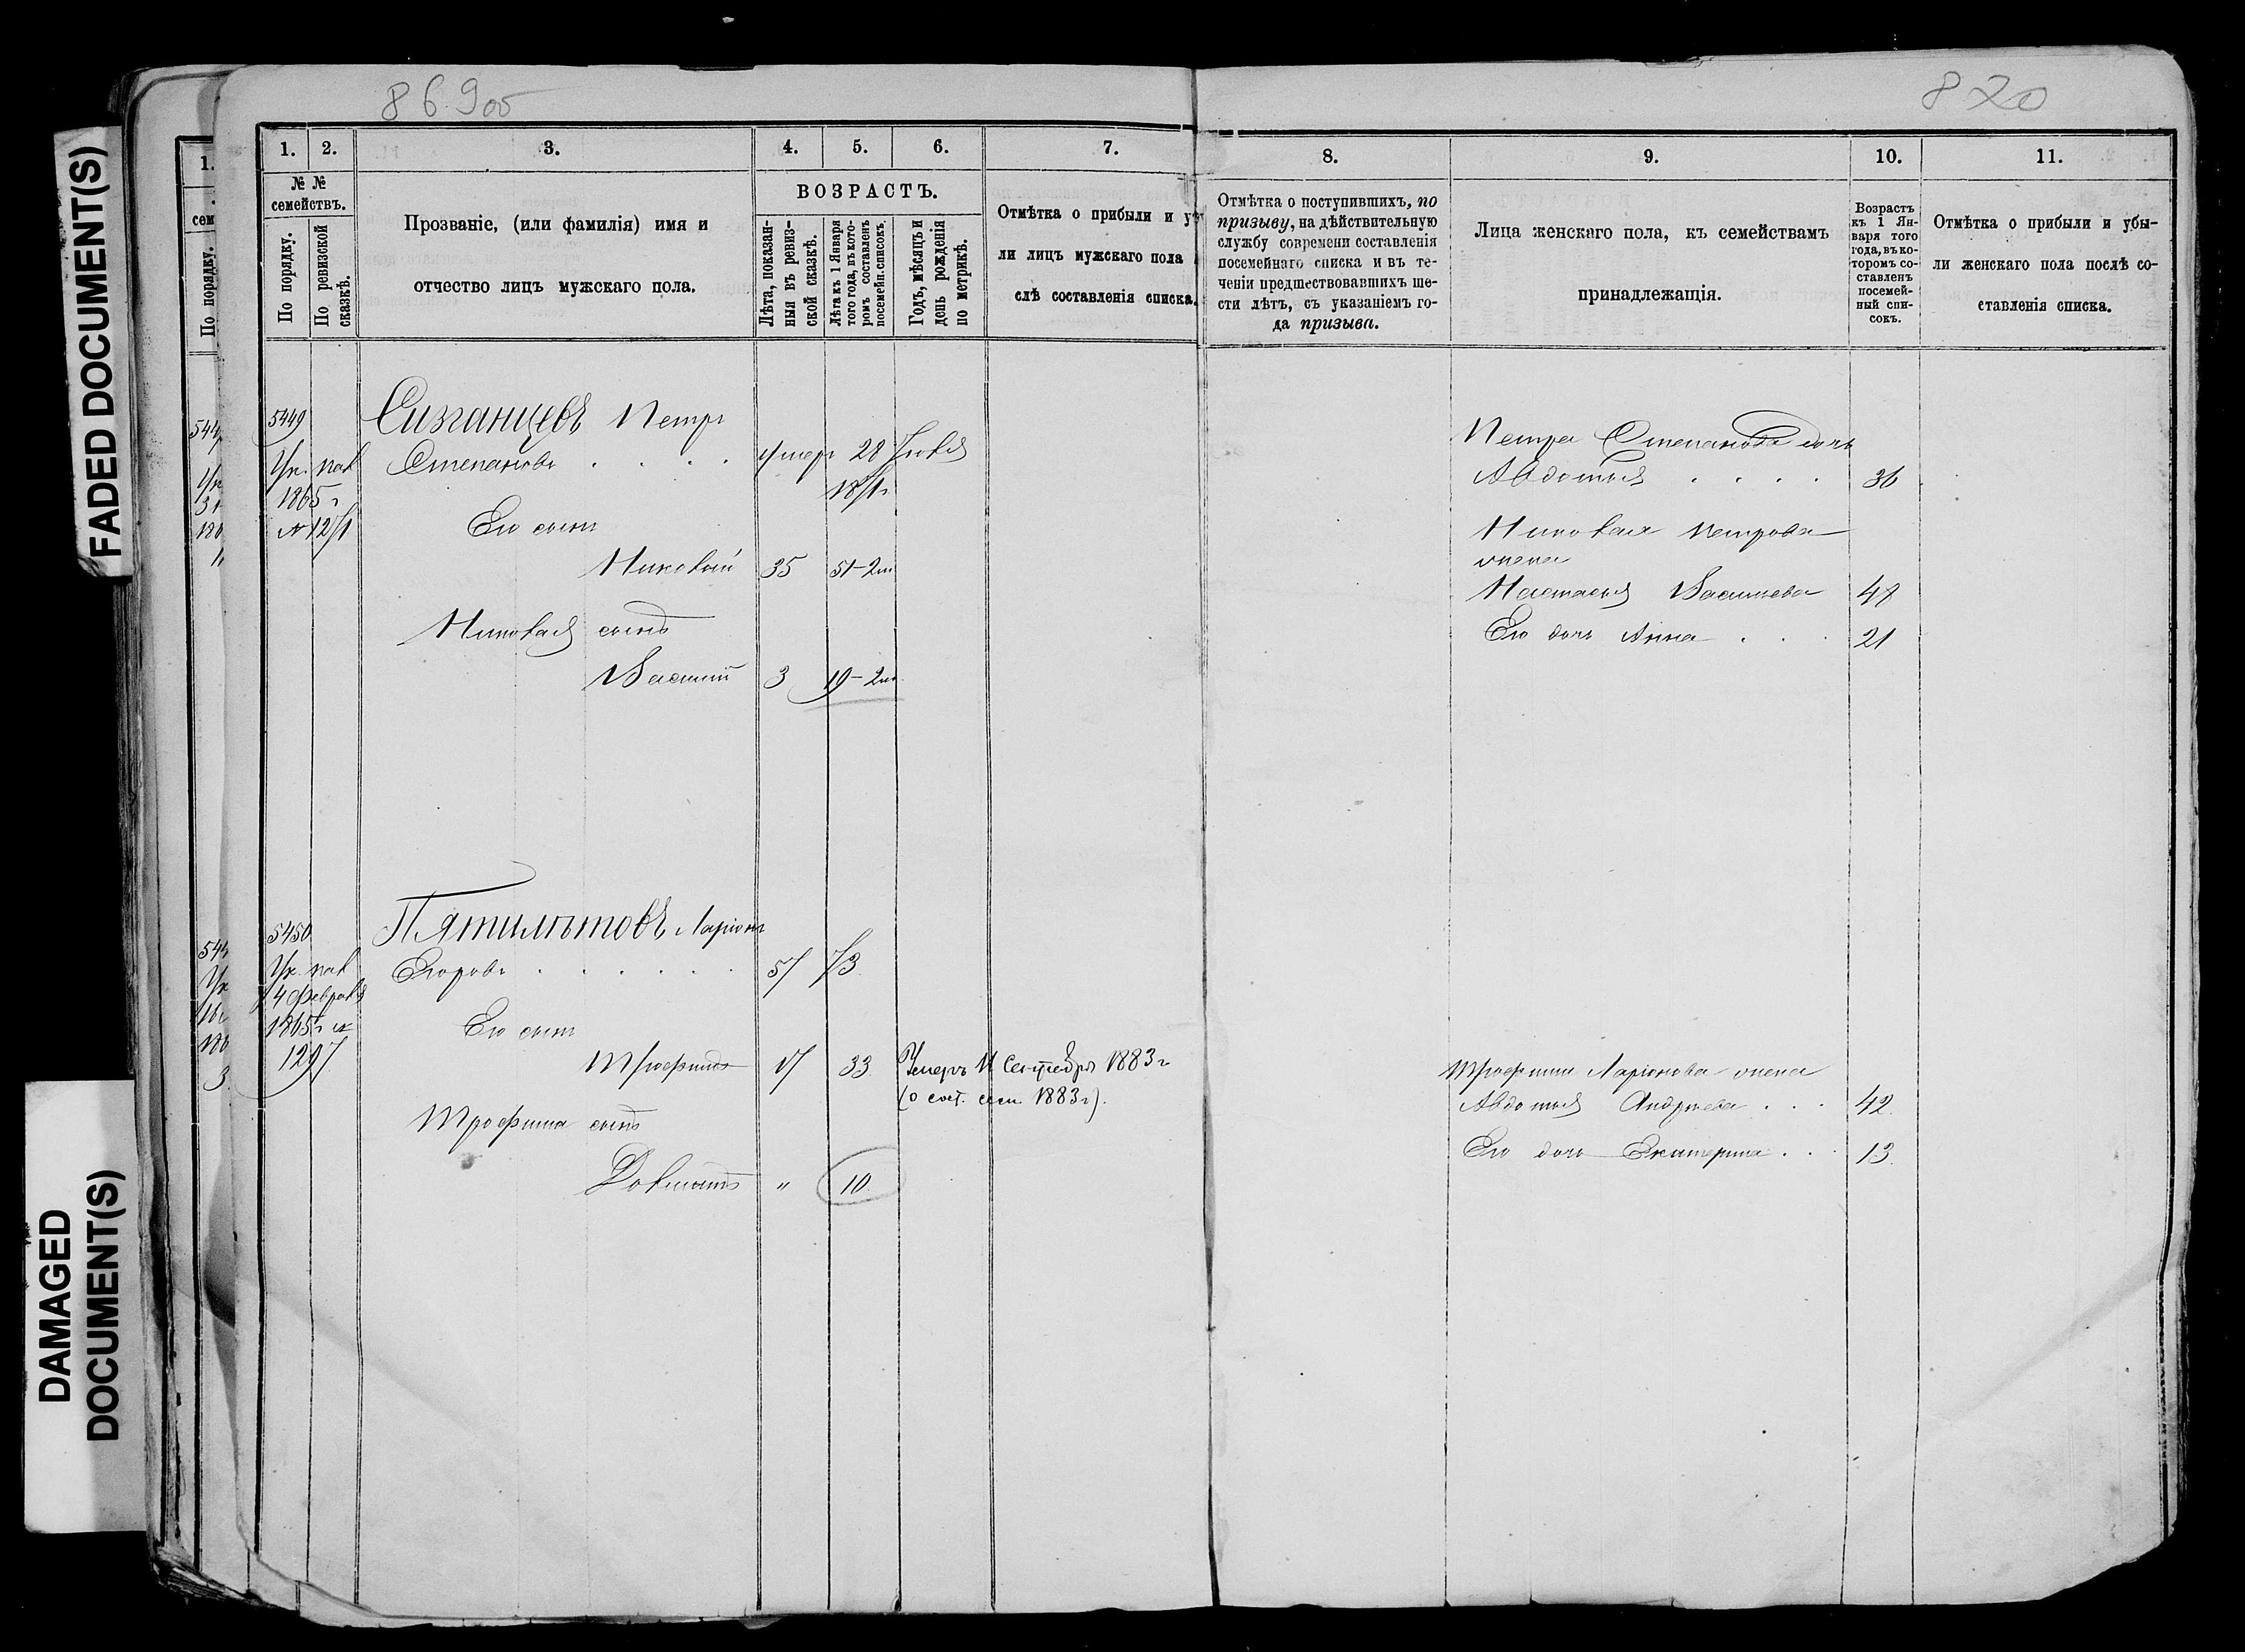 FADED DOCUMENT(S)
DAMAGED
DOCUMENT(S)
86.900
820
1.
2.
3.
4.
5.
6.
7.
8.
9.
10.
11.
№ №
семействъ.
По порядку.
По ревизской
сказкѣ.
Прозваніе, (или фамилія) имя и
отчество лицъ мужскаго пола.
ВОЗРАСТЪ.
Лѣта, показан-
ныя въ ревиз-
ской сказкѣ.
Лѣта къ 1 Января
того года, въ кото-
ромъ составленъ
посемейн. списокъ.
Годъ, мѣсяцъ и
день рожденія
по метрикѣ.
Отмѣтка о прибыли и у
ли лицъ мужскаго пола
слѣ составленія списка.
Отмѣтка о поступившихъ, по
призыву, на дѣйствительную
службу современи составленія
посемейнаго списка и въ те-
ченіи предшествовавшихъ ше-
сти лѣтъ, съ указаніемъ го-
да призыва.
Лица женскаго пола, къ семействамъ
принадлежащія.
Возрастъ
къ 1 Ян-
варя того
года, въ ко-
торомъ со-
ставленъ
посемей-
ный спи-
сокъ.
Отмѣтка о прибыли и убы-
ли женскаго пола послѣ со-
ставленія списка.
5449
Сизганцевъ Петръ
Ук. пал
Степановъ . . . . умеръ 28 Іюля
1865 г
1871г
№ 1271
Его сынъ
Николай 35 51-2м
Николая сынъ
Василій 3 19-2м
Петра Степанова дочь
Авдотья . . . . 36
Николая Петрова
жена
Настасья Васильева 48
Его дочь Анна . . . 21
5450
Пятилѣтовъ Ларіонъ
Ук. пал
Егоровъ . . . . . . 57 73
4 февраля
1865 г №
1297
Его сынъ
Трофимъ 17 33 Умеръ 11 Сентября 1883 г
(о сост. сем. 1883 г).
Трофима сынъ
Долматъ " 10
Трофима Ларіонова жена
Авдотья Андреева . . . 42
Его дочь Екатерина . . . 13